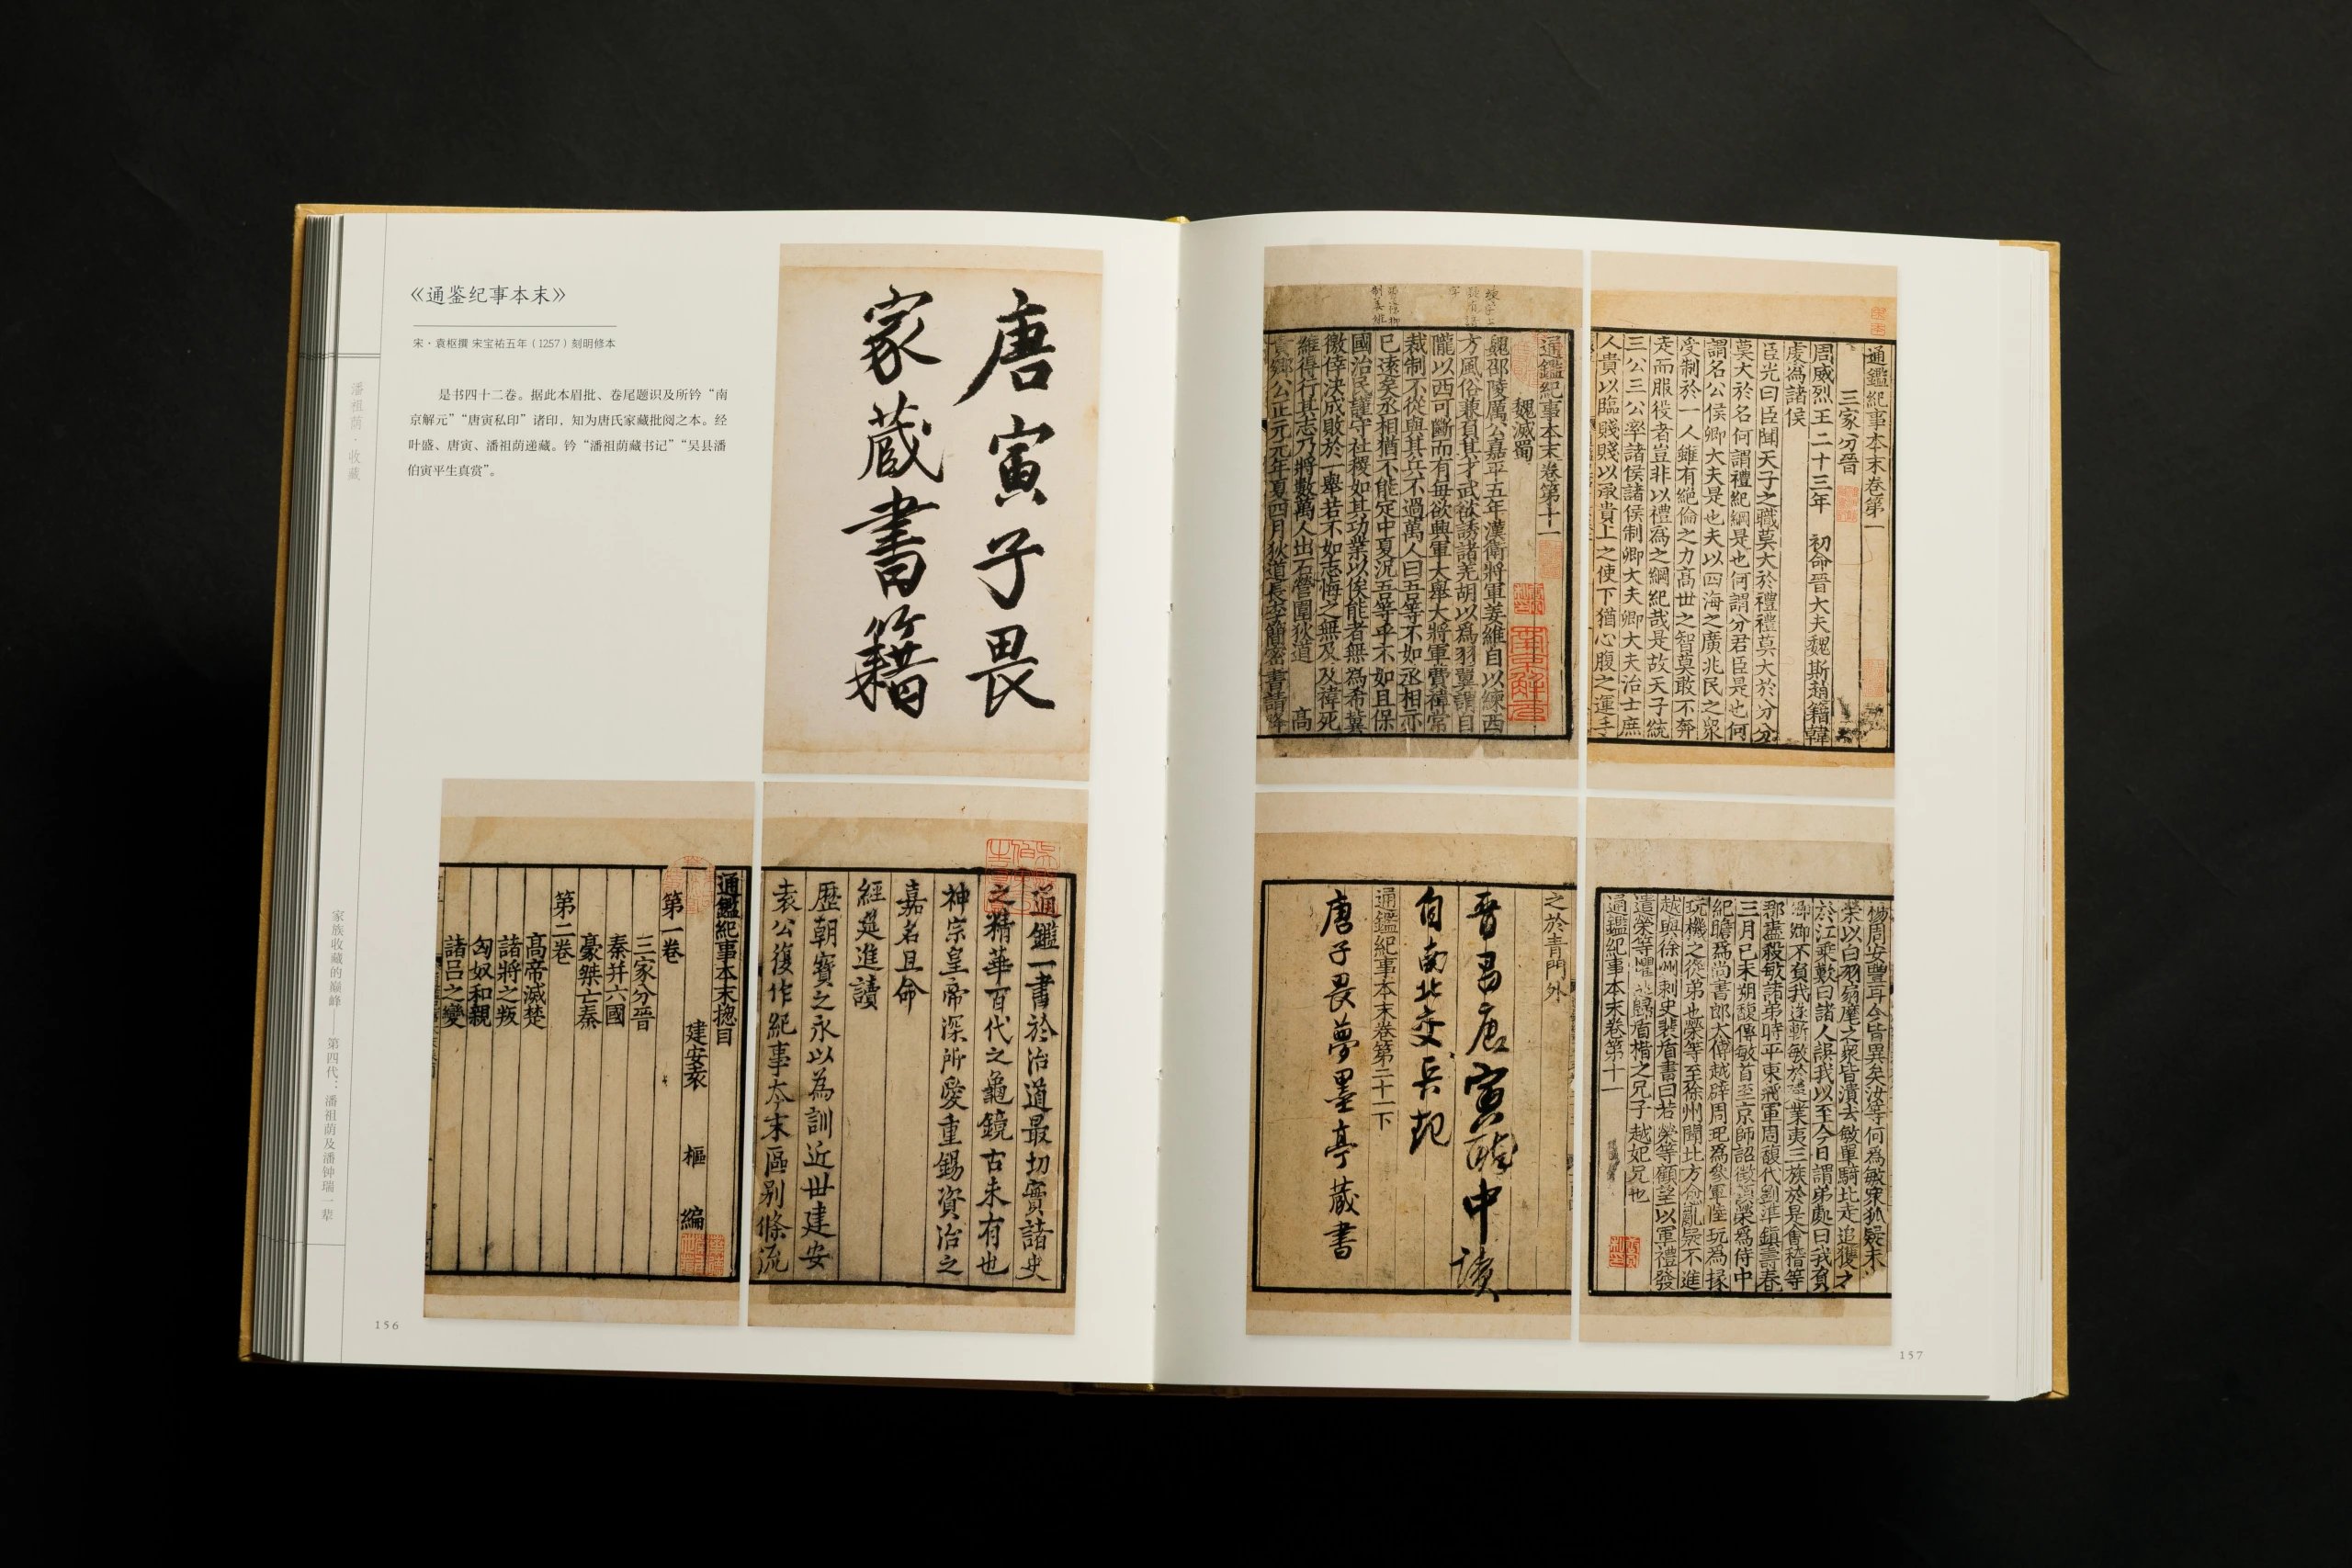 《通鉴纪事本末》
宋·袁枢撰 宋宝祐五年（1257）刻明修本
是书四十二卷。据此本眉批、卷尾题识及所钤“南
京解元”“唐寅私印”诸印，知为唐氏家藏批阅之本。经
叶盛、唐寅、潘祖荫递藏。钤“潘祖荫藏书记”“吴县潘
伯寅平生真赏”。
潘祖荫·收藏
家族收藏的巅峰——第四代：潘祖荫及潘钟瑞一辈
唐寅子畏
家藏書籍
通鑑一書於治道最切實諸史
之精華百代之龜鏡古未有也
神宗皇帝深所愛重錫資治之
嘉名且命
經筵進讀
歷朝寶之永以為訓近世建安
袁公復作紀事本末區别條流
通鑑紀事本末揔目
建安袁 樞 編
第一卷
三家分晉
秦并六國
豪桀亡秦
第二卷
高帝滅楚
諸將之叛
匈奴和親
諸呂之變
156
通鑑紀事本末卷第一
三家分晉
周威烈王二十三年 初命晉大夫魏斯趙籍韓
虔為諸侯
臣光曰臣聞天子之職莫大於禮禮莫大於分分
莫大於名何謂禮紀綱是也何謂分君臣是也何
謂名公侯卿大夫是也夫以四海之廣兆民之衆
受制於一人雖有絕倫之力高世之智莫敢不奔
走而服役者豈非以禮為之綱紀哉是故天子統
三公三公率諸侯諸侯制卿大夫卿大夫治士庶
人貴以臨賤賤以承貴上之使下猶心腹之運手
通鑑紀事本末卷第十一
魏滅蜀
魏邵陵厲公嘉平五年漢衛將軍姜維自以練西
方風俗兼負其才武欲誘諸羌胡以為羽翼謂自
隴以西可斷而有每欲興軍大舉大將軍費禕常
裁制不從與其兵不過萬人曰吾等不如丞相亦
已遠矣丞相猶不能定中夏況吾等乎不如且保
國治民謹守社稷如其功業以俟能者無為希冀
徼倖決成敗於一舉若不如志悔之無及及禕死
維得行其志乃將數萬人出石營圍狄道 高
貴鄉公正元元年夏四月狄道長李簡密書請降
南京解元
楊周安豐耳今皆異矣汝等何為敏宋狐疑未
榮以白羽扇麾之衆皆潰去敏單騎北走追獲之
於江乘歎曰諸人誤我以至今日謂弟處曰我負
卿卿不負我遂斬敏於建業夷三族於是會稽等
郡盡殺敏諸弟時平東將軍周馥代劉準鎮壽春
三月己未朔馥傳敏首至京師詔徵顧榮為侍中
紀瞻為尚書郎太傅越辟周玘為參軍陸玩為掾
玩機之從弟也榮等至徐州聞北方愈亂疑不進
越與徐州刺史裴盾書曰若榮等顧望以軍禮發
遣榮等懼逃歸盾楷之兄子越妃兄也
通鑑紀事本末卷第十一
之於青門外
晋昌唐寅醉中读
自南北交兵起
通鑑紀事本末卷第二十一下
唐子畏夢墨亭藏書
157